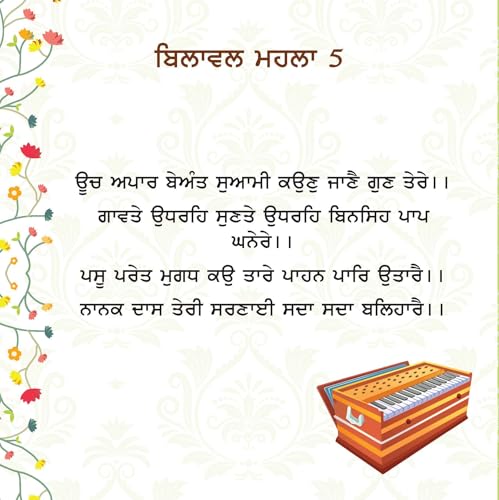 ਬਿਲਾਵਲ ਮਹਲਾ 5
ਊਚ ਅਪਾਰ ਬੇਅੰਤ ਸੁਆਮੀ ਕਉਣੁ ਜਾਣੈ ਗੁਣ ਤੇਰੇ।।
ਗਾਵਤੇ ਉਧਰਹਿ ਸੁਣਤੇ ਉਧਰਹਿ ਬਿਨਸਿਹ ਪਾਪ
ਘਨੇਰੇ।।
ਪਸੂ ਪਰੇਤ ਮੁਗਧ ਕਉ ਤਾਰੇ ਪਾਹਨ ਪਾਰਿ ਉਤਾਰੈ।।
ਨਾਨਕ ਦਾਸ ਤੇਰੀ ਸਰਣਾਈ ਸਦਾ ਸਦਾ ਬਲਿਹਾਰੈ।।